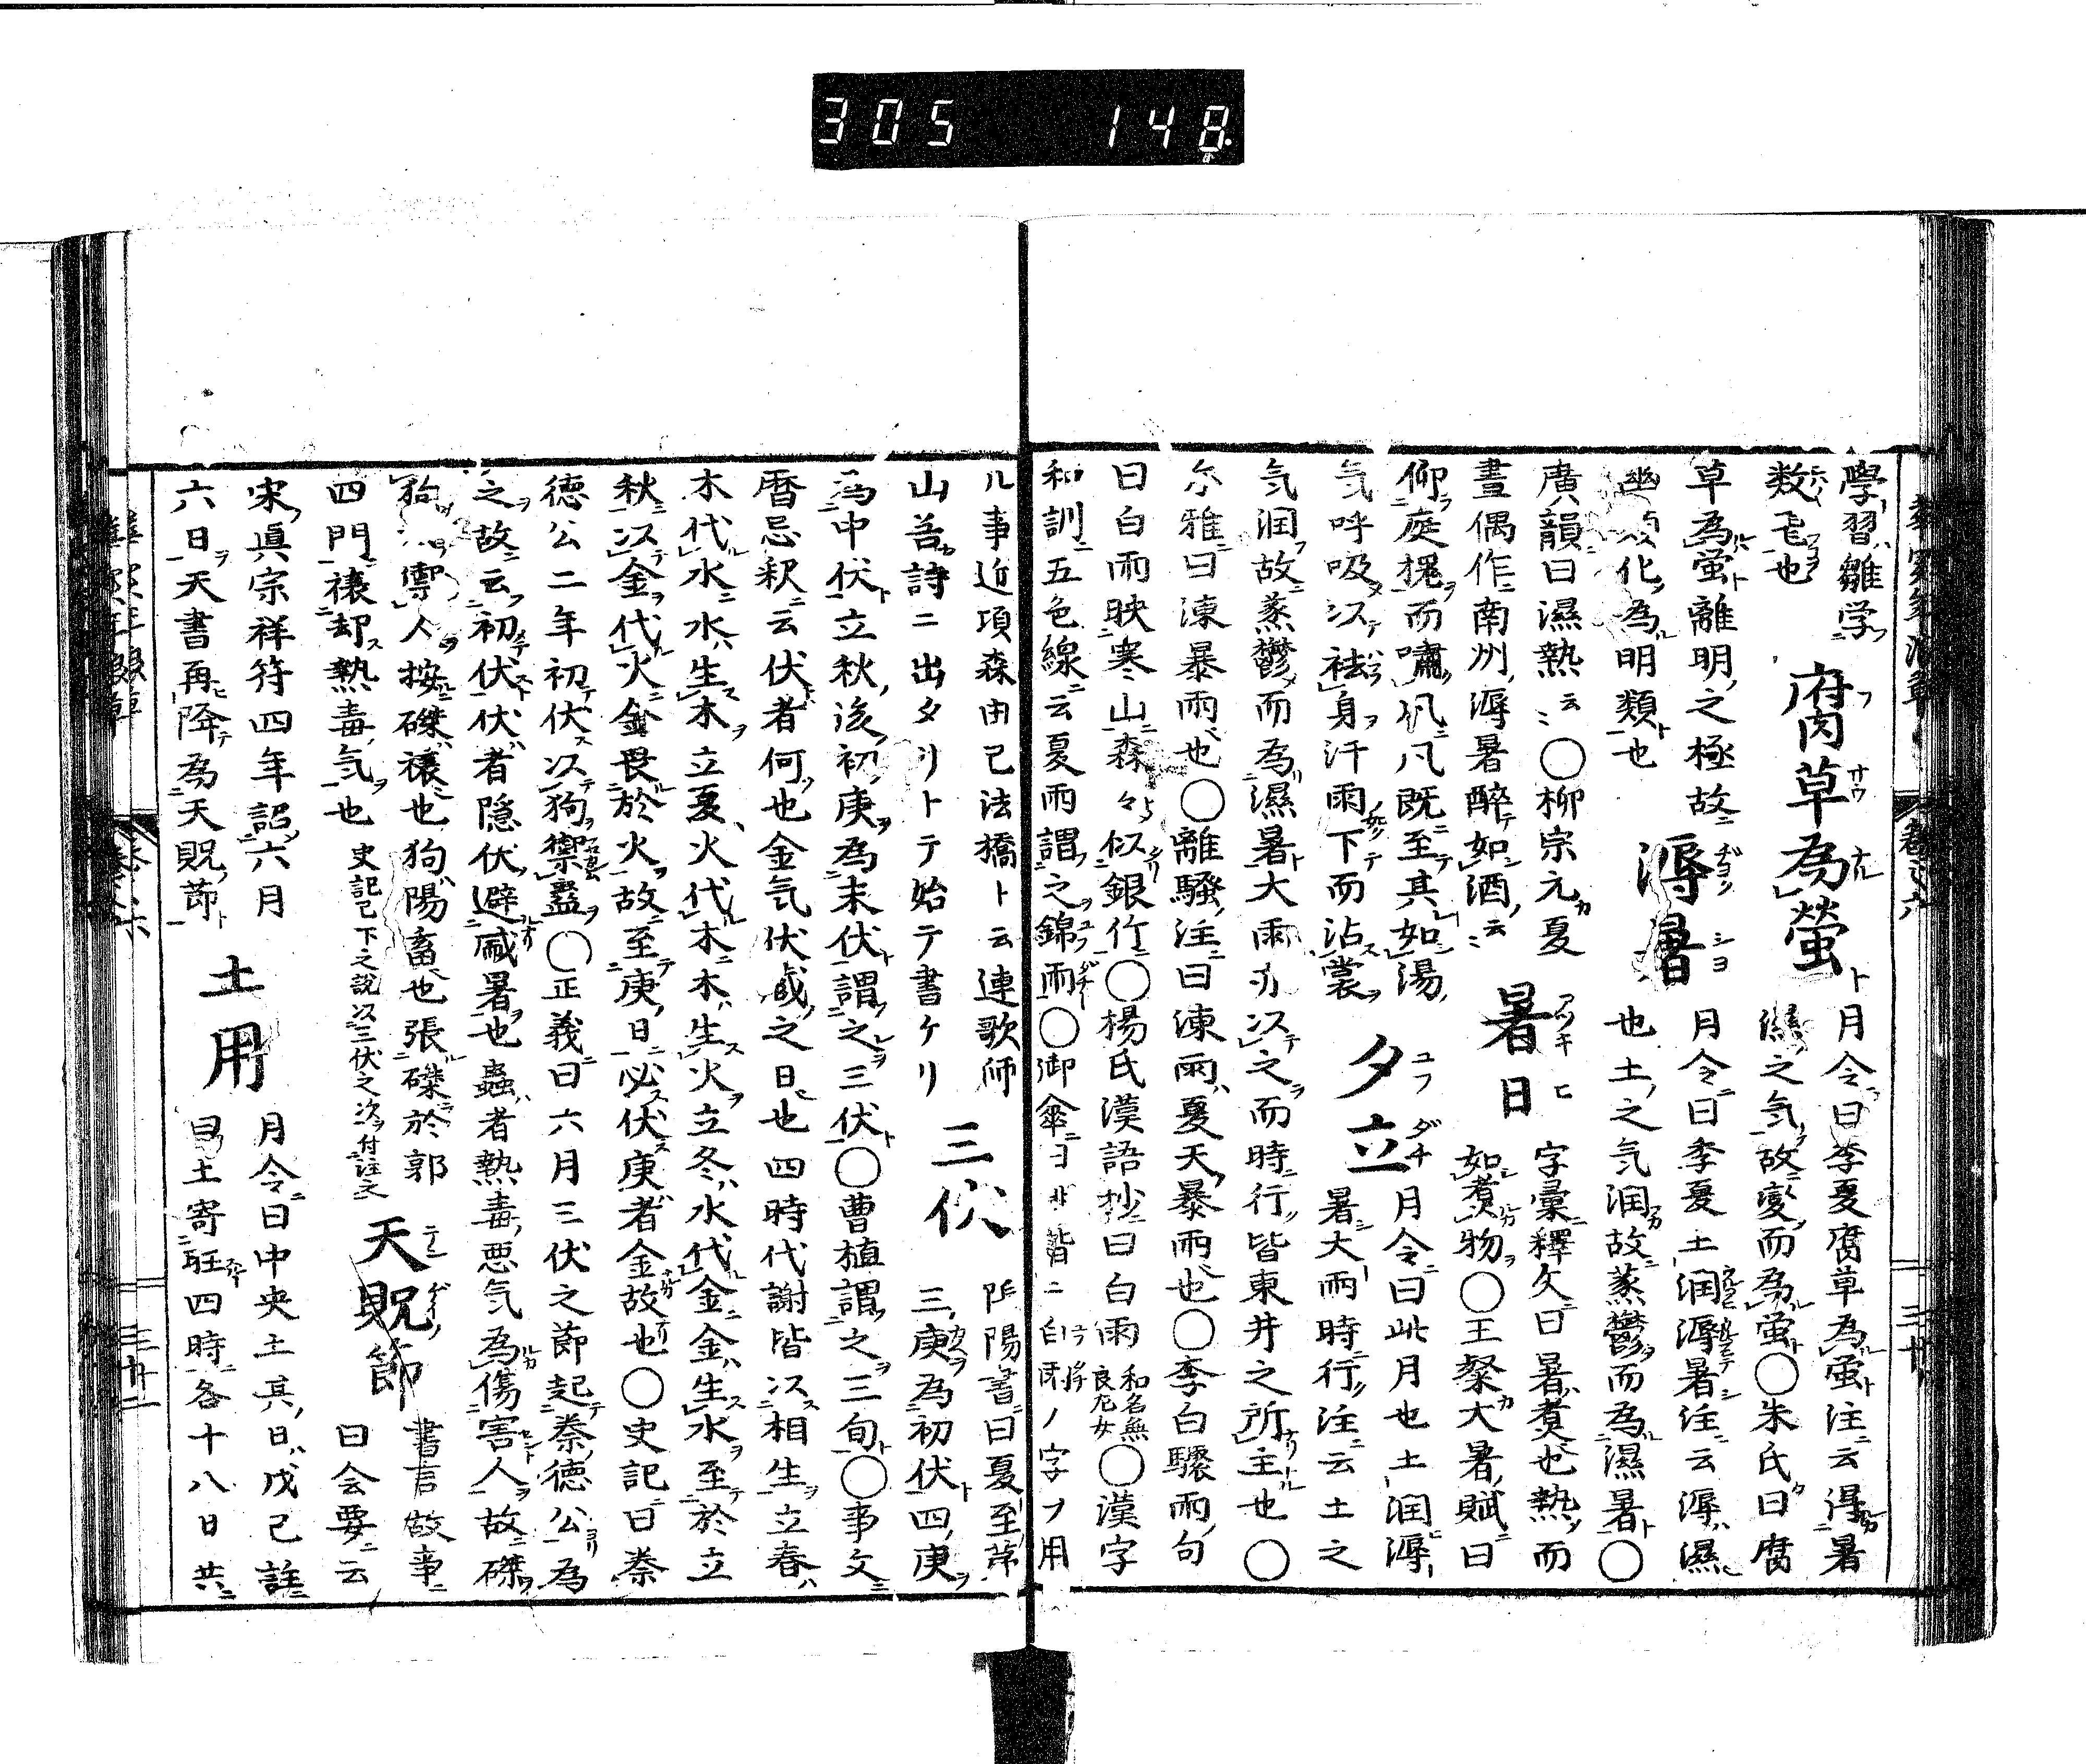 305 148
學習雛学
数飛也
腐草為螢
月令曰季夏腐草為蛍注云得暑
濕之気故変而為蛍○朱氏曰腐
草為蛍離明之極故
幽類化為明類也
溽暑
月令曰季夏土潤溽暑注云溽濕
也土之気润故蒸鬱而為濕暑○
廣韻曰濕熱云〻○柳宗元夏
晝偶作南州溽暑醉如酒云〻
暑日
字彙釋文曰暑煮也熱而
如煮物○王粲大暑賦曰
仰庭槐而嘯凬凡既至其如湯
気呼吸以祛身汗雨下而沾裳
夕立
月令曰此月也土润溽
暑大雨時行注云土之
気润故蒸鬱而為濕暑大雨亦以之而時行皆東井之所主也○
尓雅曰涷暴雨也○離騒注曰涷雨夏天暴雨也○李白驟雨句
曰白雨映寒山森々似銀竹○楊氏漢語抄曰白雨和名無良左女○漢字
和訓五色線云夏雨謂之錦雨○御傘ヨ皆ニ白ノ字ヲ用
ル事近項森由己法橋ト云連歌師
山谷詩ニ出タリトテ始テ書ケリ
三伏
陽書曰夏至第
三庚為初伏四庚
為中伏立秋後初庚為末伏謂之三伏○曹植謂之三旬○事文
暦忌釈云伏者何也金気伏蔵之日也四時代謝皆以相生立春
木代水水生木立夏火代木木生火立冬水代金金生水至於立
秋以金代火金畏於火故至庚日必伏庚者金故也○史記曰秦
徳公二年初伏以狗禦蠱○正義曰六月三伏之節起秦徳公為
之故云初伏伏者隠伏避盛暑也蟲者熱毒悪気為傷害人故磔
狗禦人按磔禳也狗陽畜也張磔於郭
四門禳却熱毒気也 史記已下之説以三伏之次付註之
天貺節
書言故事
曰会要云
宋真宗祥符四年詔六月
六日天書再降為天貺節
土用
月令曰中央土其日戊己註
曰土寄旺四時各十八日共